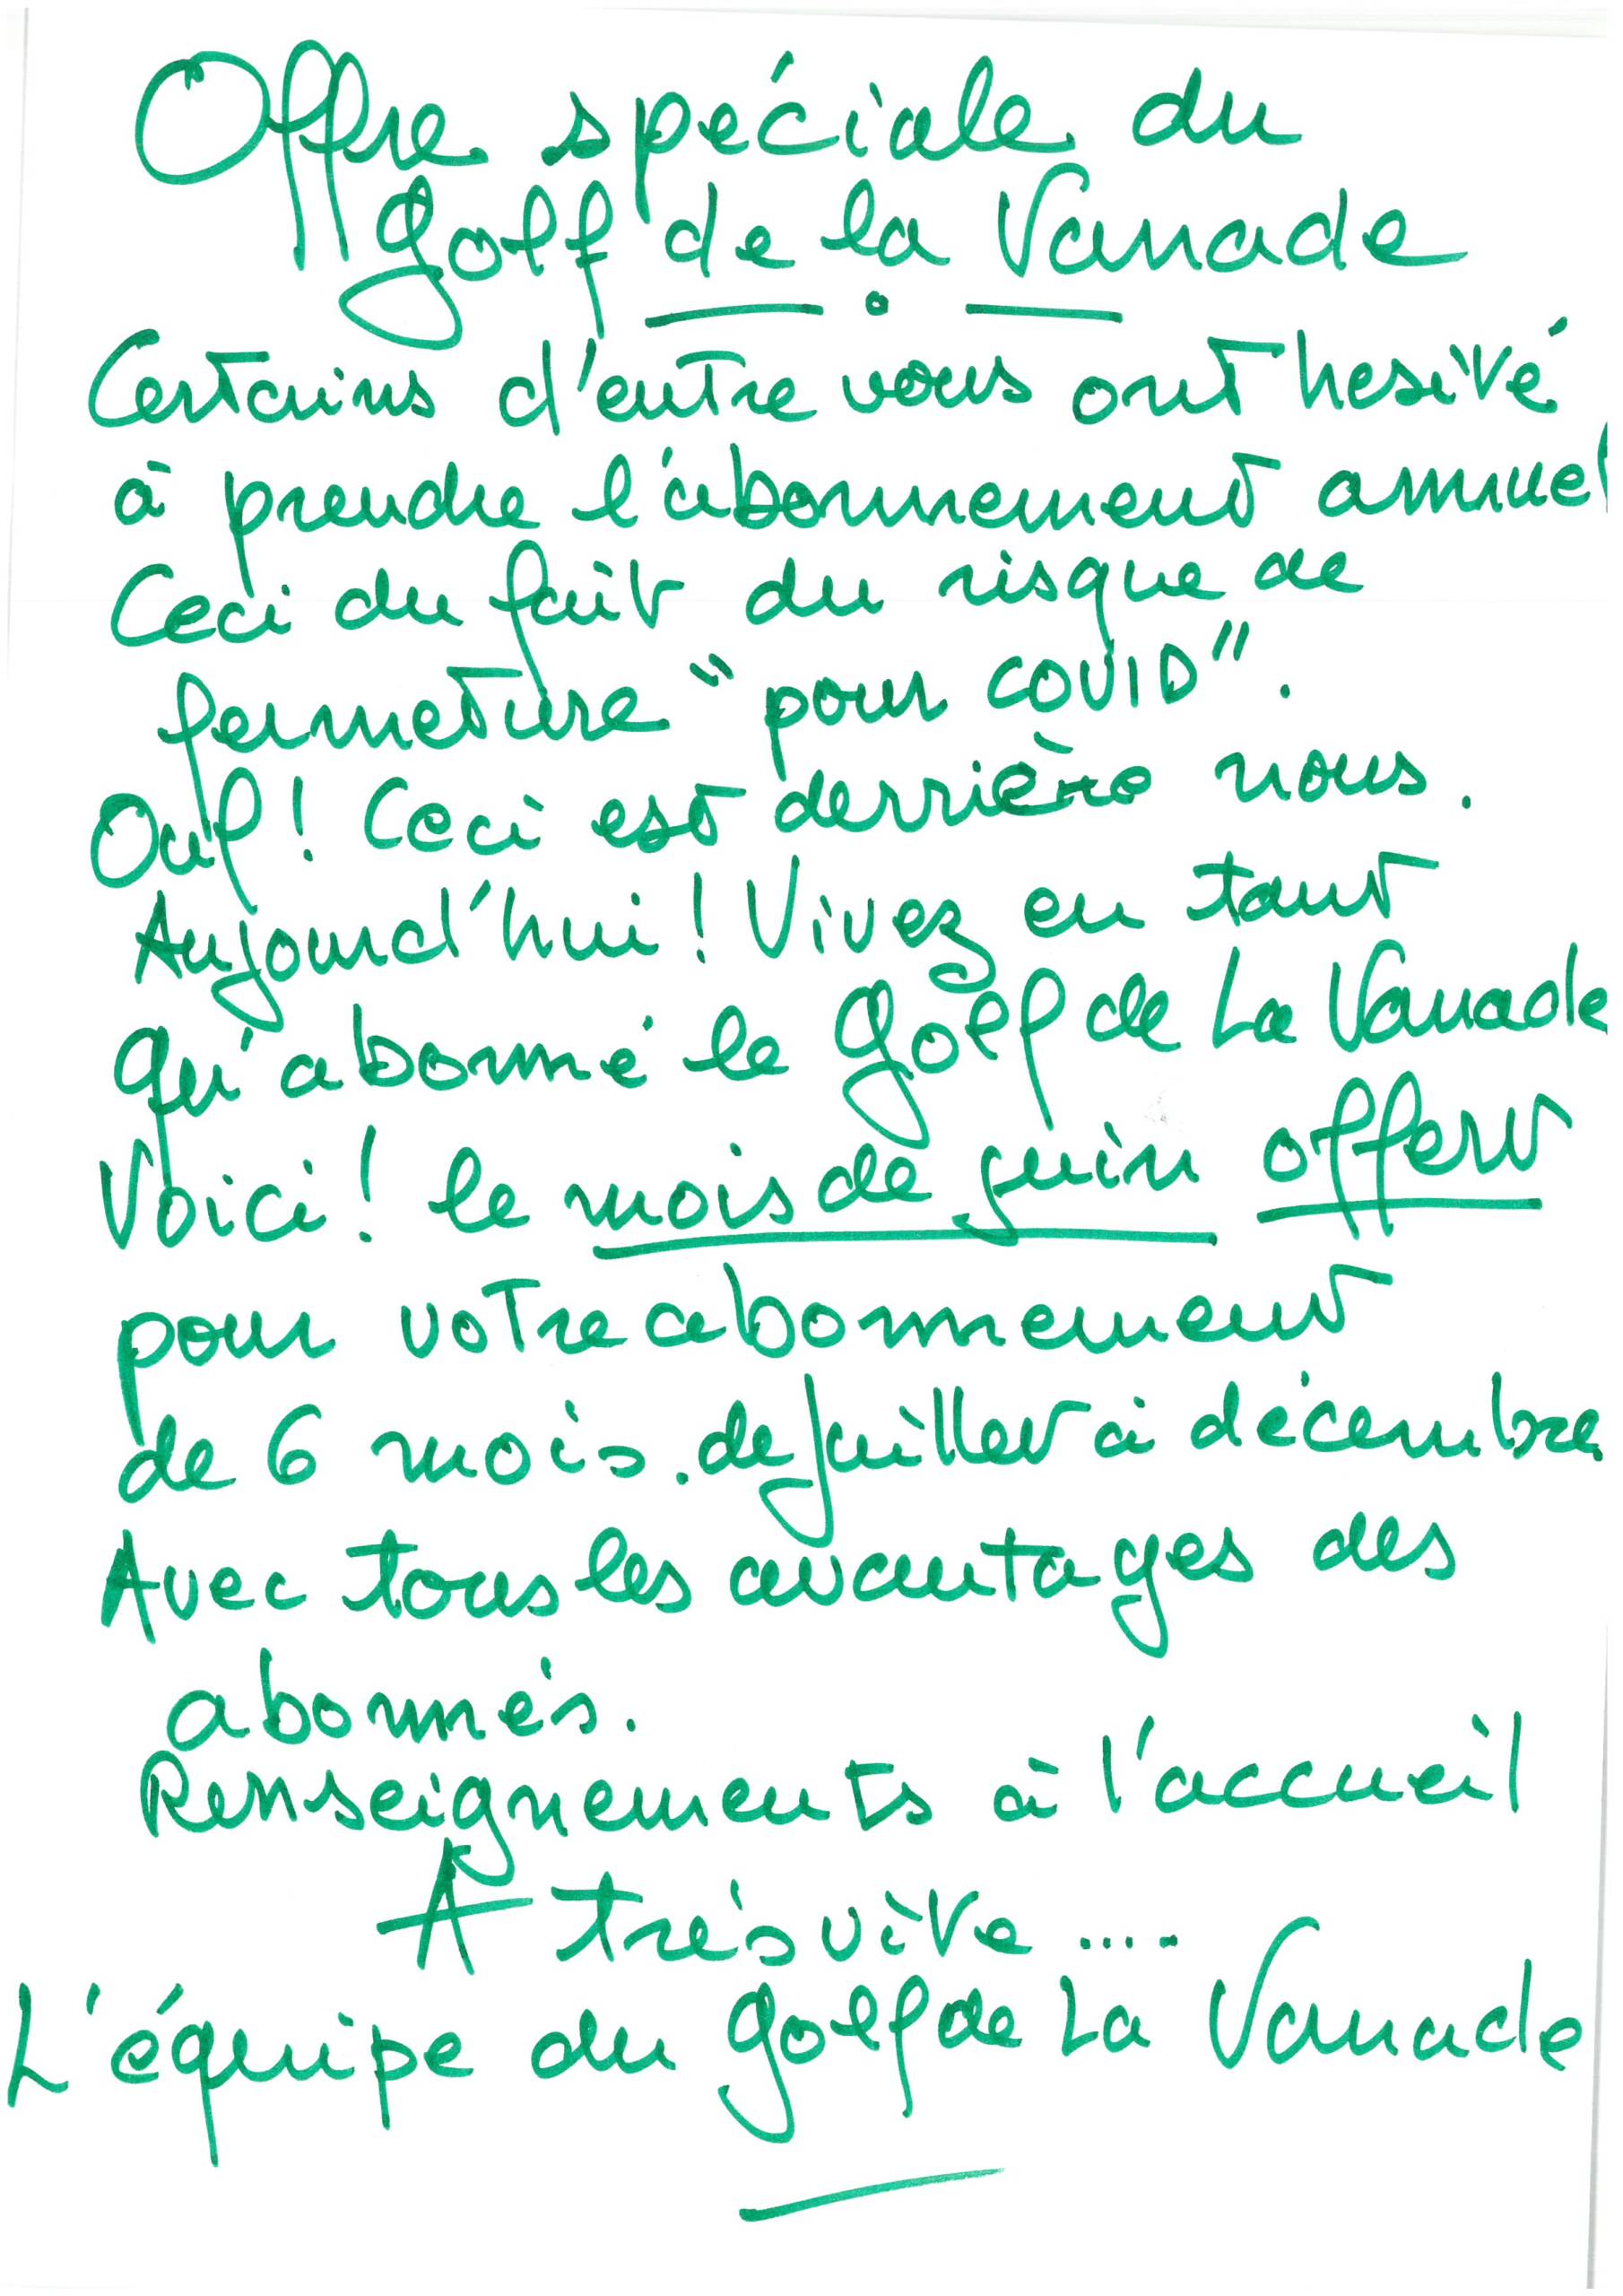 Offre spéciale du
golf de la Vanade
Certains d'entre vous ont hesité
à prendre l'abonnement annuel
Ceci du fait du risque de
fermeture "pour COVID".
Ouf! Ceci est derrière nous.
Aujourd'hui! Vivez en tant
qu'abonné le golf de La Vanade
Voici! le mois de juin offert
pour votre abonnement
de 6 mois. de Juillet à décembre
Avec tous les avantages des
abonnés.
Renseignements à l'accueil
A très vite ....
L'équipe du golf de La Vanade